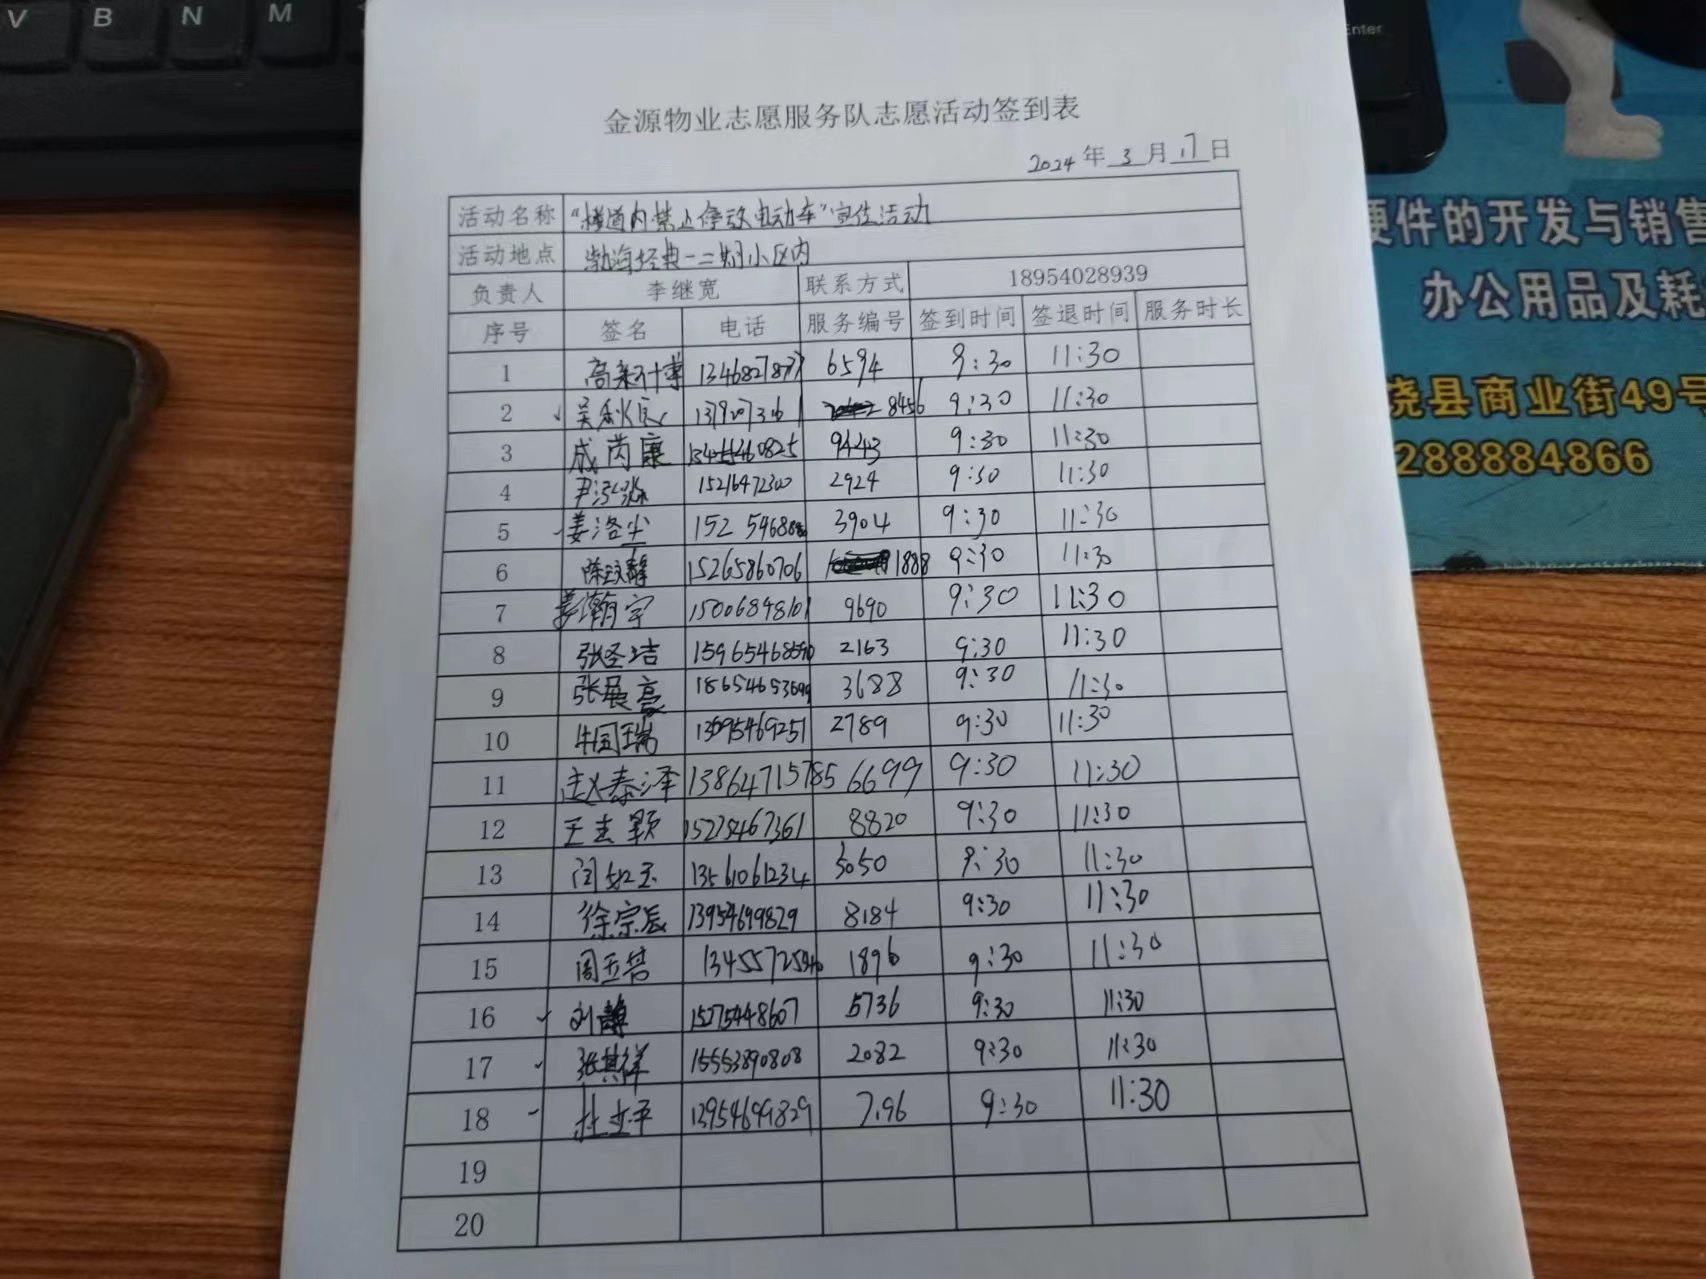 V B N M
Enter
金源物业志愿服务队志愿活动签到表
2024 年 3 月 17 日
活动名称 “楼道内禁止停放电动车”宣传活动
活动地点 渤海经典一二期小区内
负责人 李继宽 联系方式 18954028939
序号 签名 电话 服务编号 签到时间 签退时间 服务时长
1 13468278777 6594 9:30 11:30
2 8456 9:30 11:30
3 成芮康 9443 9:30 11:30
4 15216472300 2924 9:30 11:30
5 姜洛尘 3904 9:30 11:30
6 15265860706 1888 9:30 11:30
7 姜瀚宇 15006848101 9690 9:30 11:30
8 张圣洁 2163 9:30 11:30
9 张展豪 3688 9:30 11:30
10 牛国瑞 2789 9:30 11:30
11 赵泰泽 13864715785 6699 9:30 11:30
12 15275467361 8820 9:30 11:30
13 闫如玉 13561061234 5050 9:30 11:30
14 徐宗辰 13954699829 8184 9:30 11:30
15 1896 9:30 11:30
16 刘静 15275448607 5736 9:30 11:30
17 张其祥 15553890808 2082 9:30 11:30
18 13954699829 7196 9:30 11:30
19
20
硬件的开发与销售
办公用品及耗
饶县商业街49号
288884866